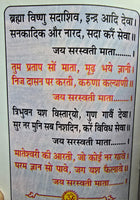 ब्रह्मा विष्णु सदाशिव, इन्द्र आदि देवा
सनकादिक और नारद, सदा करें सेवा
जय सरस्वती माता.......।
तुम प्रताप सों माता, मूढ़ भये ज्ञानी
निज दासन पर करती, करुणा कल्याणी
जय सरस्वती माता.......।
त्रिभुवन यश विस्तारयो, गुण गावें देवा
सुर नर मुनि सब निशदिन, करें विविध सेवा
जय सरस्वती माता.......।
मातेश्वरी की आरती, जो कोई नर गावे
परम ज्ञान सो पावे, जग यश फैलावे
जय सरस्वती माता